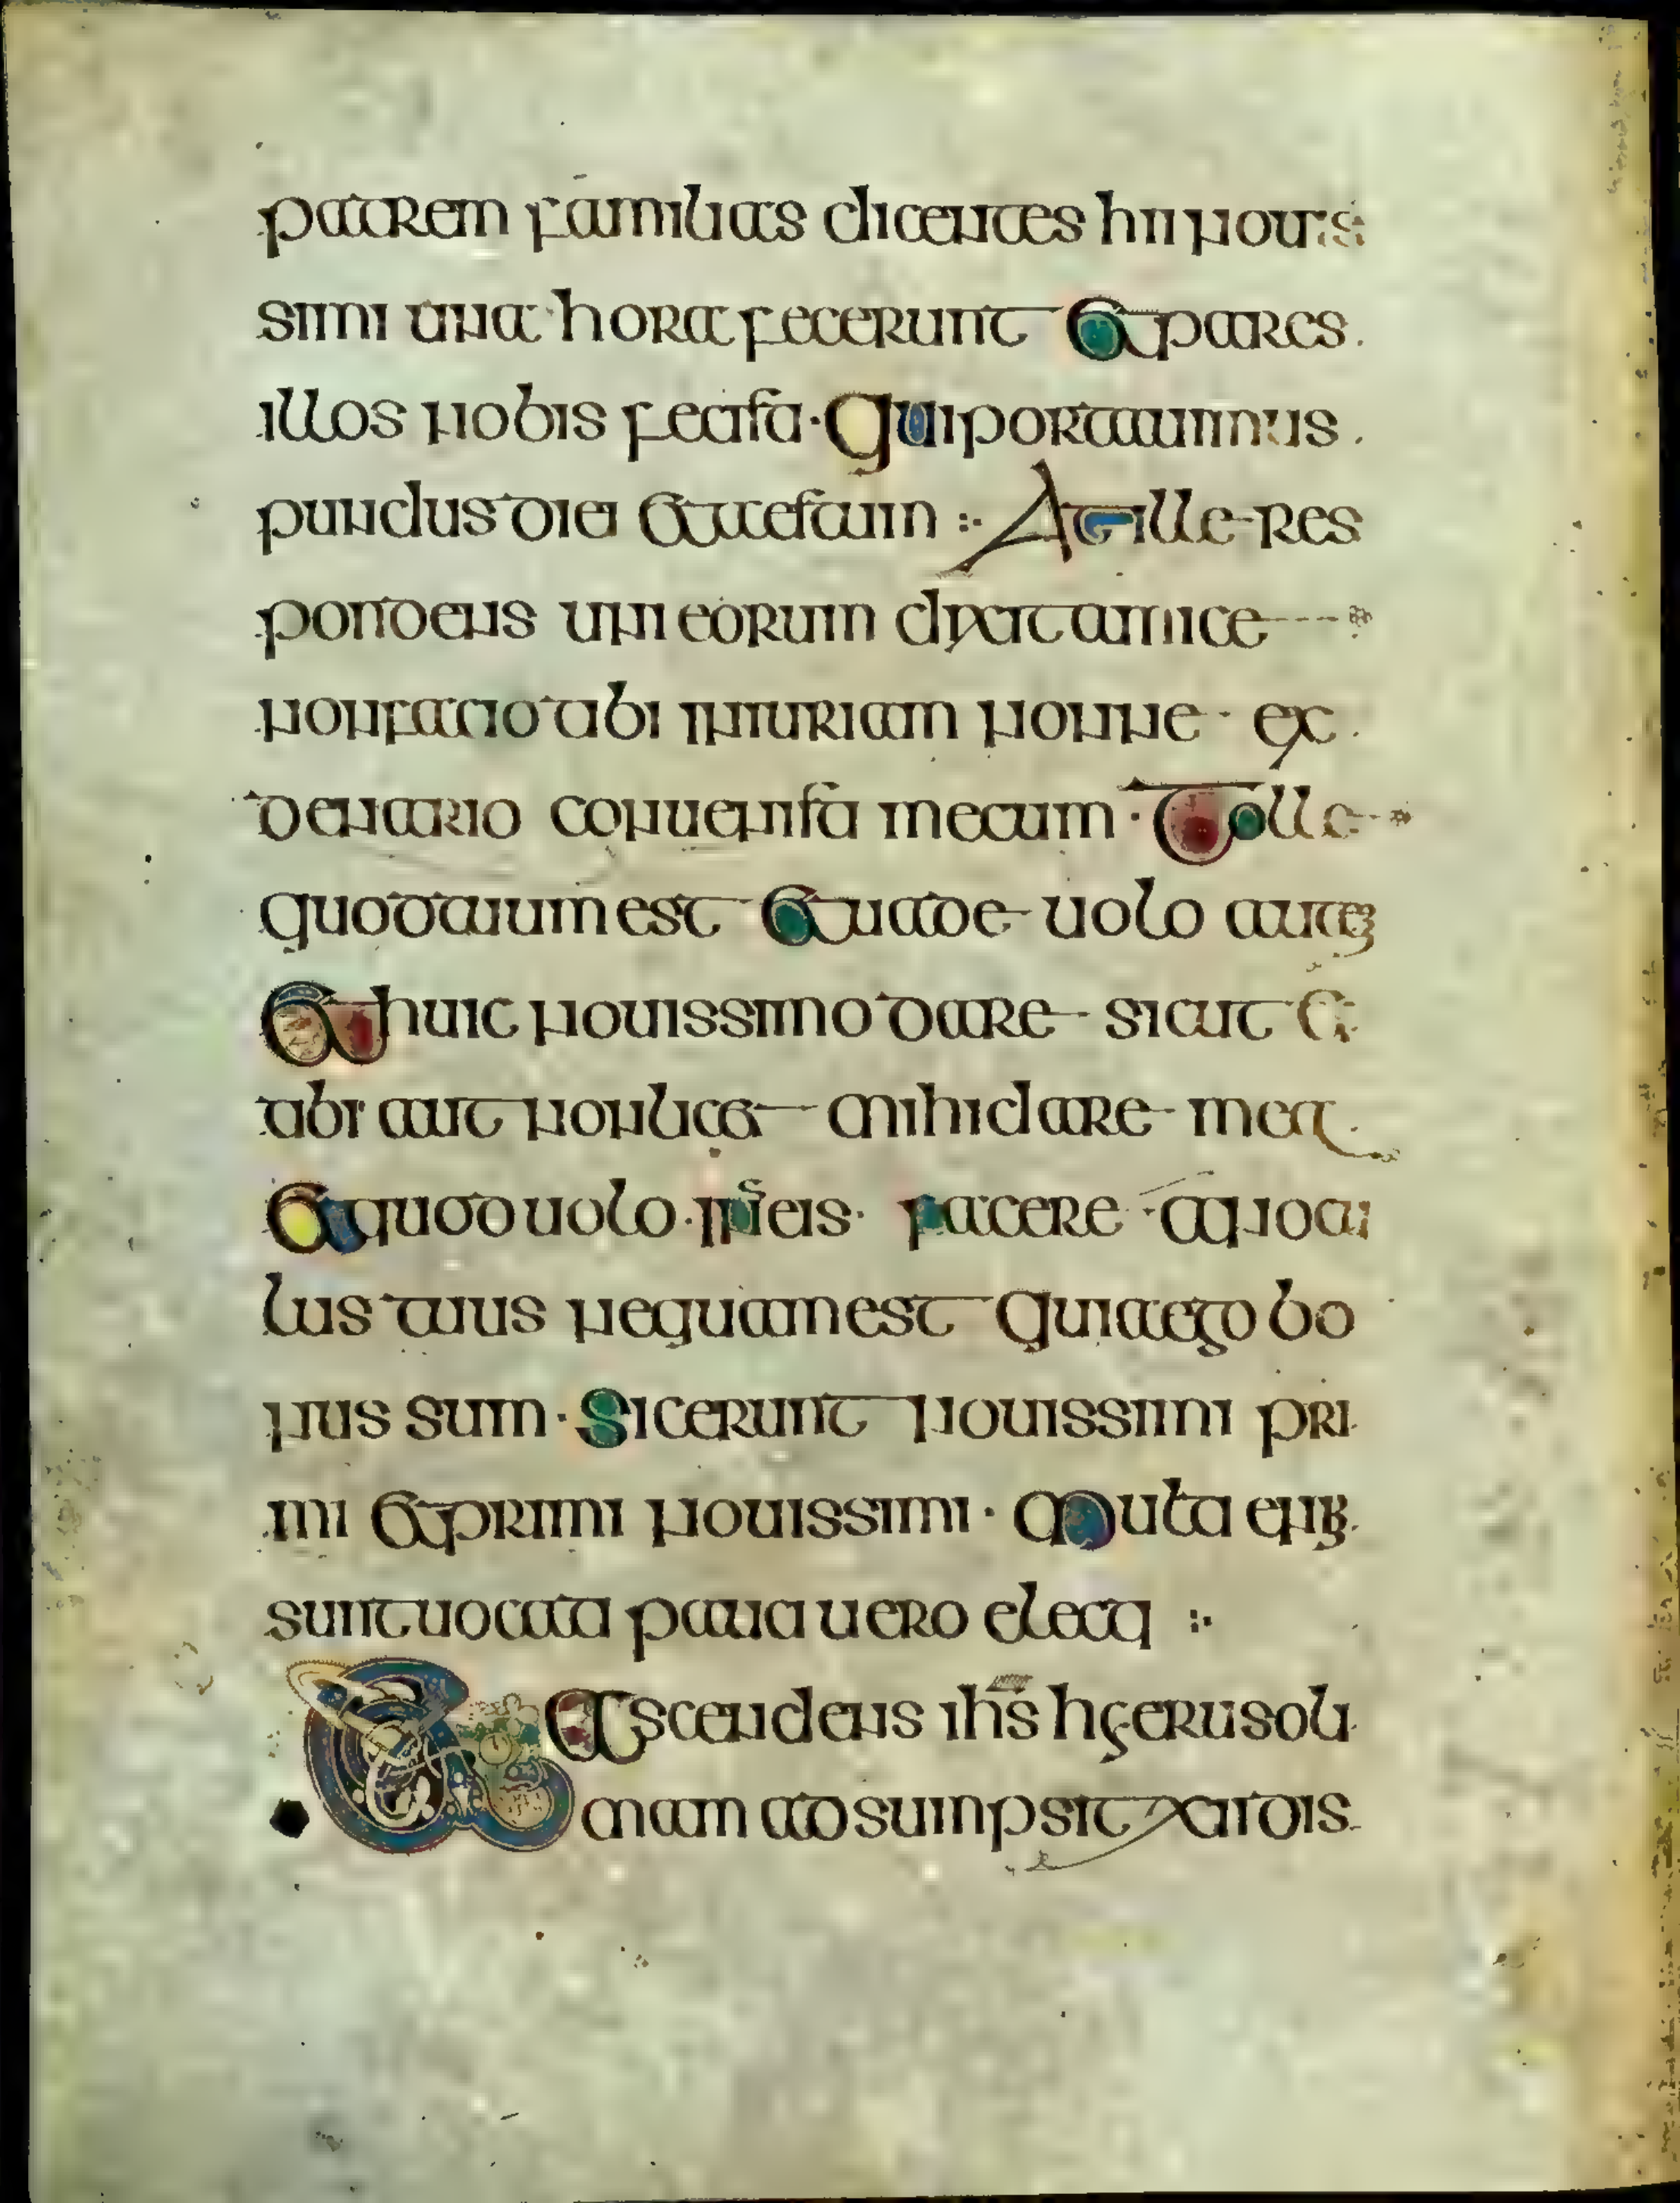 patrem familias dicentes hii nouis
simi una hora fecerunt et pares
illos nobis fecisti qui portauimus
pundus diei et aestum At ille res
pondens uni eorum dixit amice
non facio tibi iniuriam nonne ex
denario conuenisti mecum Tolle
quod tuum est et uade uolo autem
et huic nouissimo dare sicut et
tibi aut non licet mihi dare mea
et quod uolo in meis facere an ocu
lus tuus nequam est quia ego bo
nus sum Sic erunt nouissimi pri
mi et primi nouissimi Multi enim
sunt uocati pauci uero electi
Et ascendens ihs hierusoli
mam adsumpsit xii dis